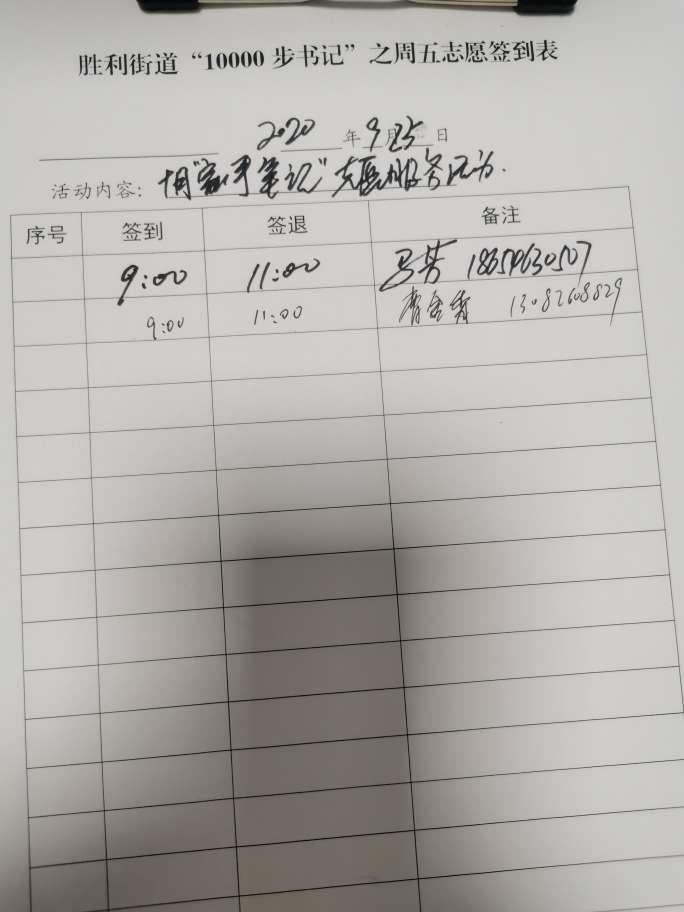 胜利街道“10000步书记”之周五志愿签到表
2020年9月25日
活动内容： “ 笔记”志愿服务活动.
序号 签到 签退 备注
9:00 11:00 马芳 18654630507
9:00 11:00 秀 13082608829